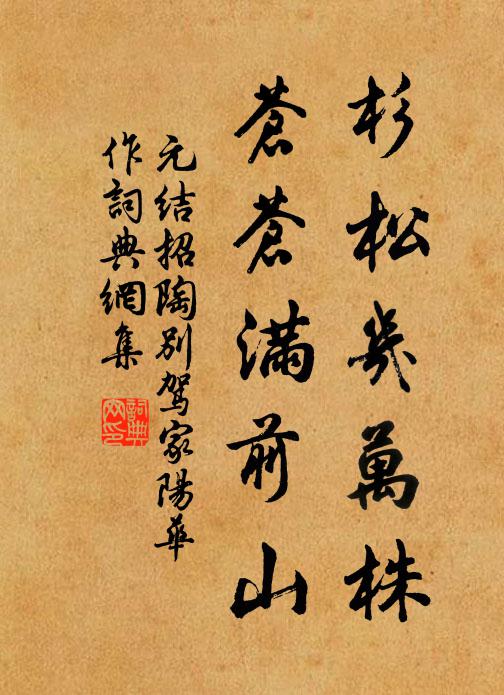 杉松幾萬株
蒼蒼滿前山
元结招陶别駕家陽華
作詞典網集
詞典
网印